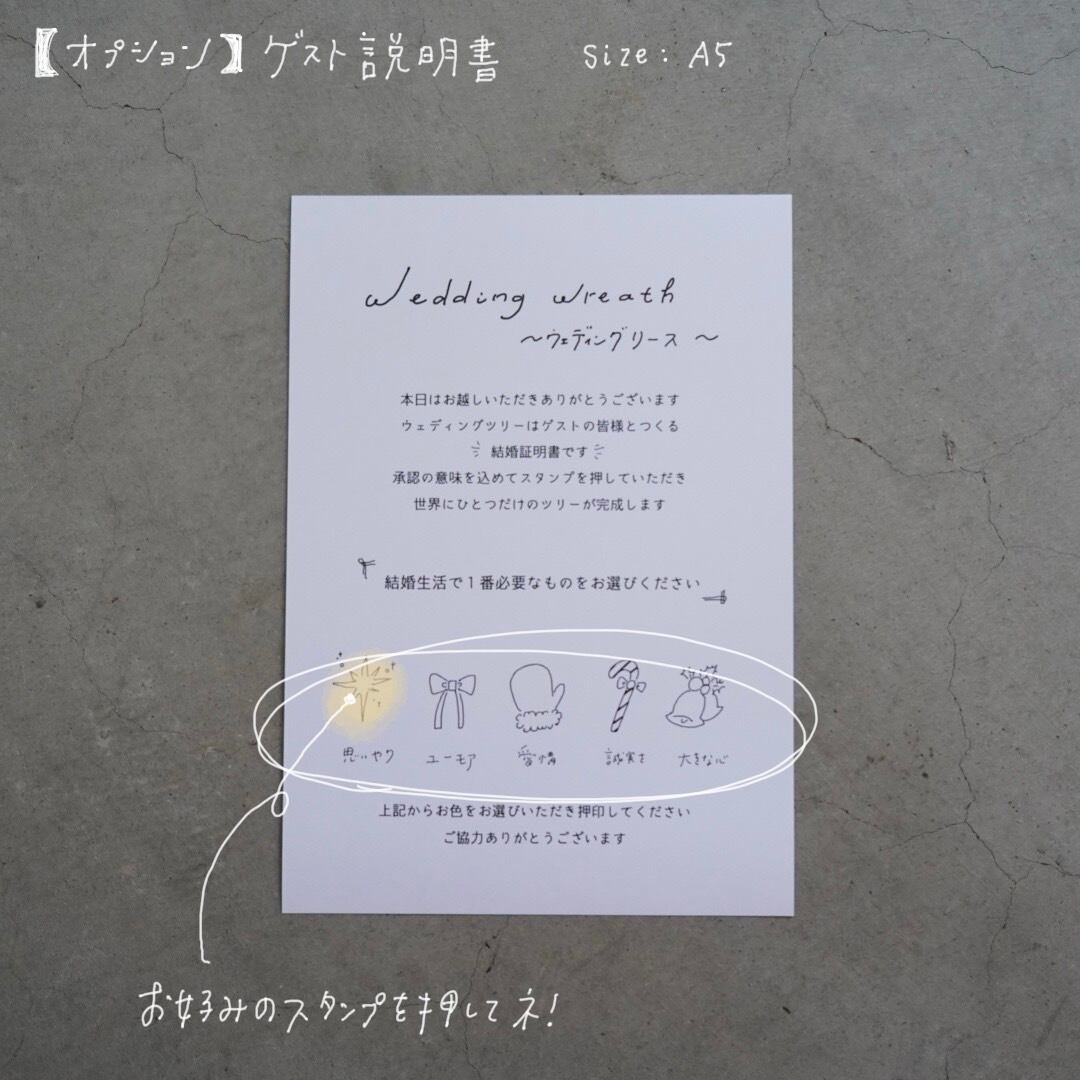 【オプション】ゲスト説明書 Size: A5
Wedding wreath
〜ウェディングリース〜
本日はお越しいただきありがとうございます
ウェディングツリーはゲストの皆様とつくる
結婚証明書です
承認の意味を込めてスタンプを押していただき
世界にひとつだけのツリーが完成します
結婚生活で1番必要なものをお選びください
思いやり ユーモア 愛情 誠実さ 大きな心
上記からお色をお選びいただき押印してください
ご協力ありがとうございます
お好みのスタンプを押してネ!